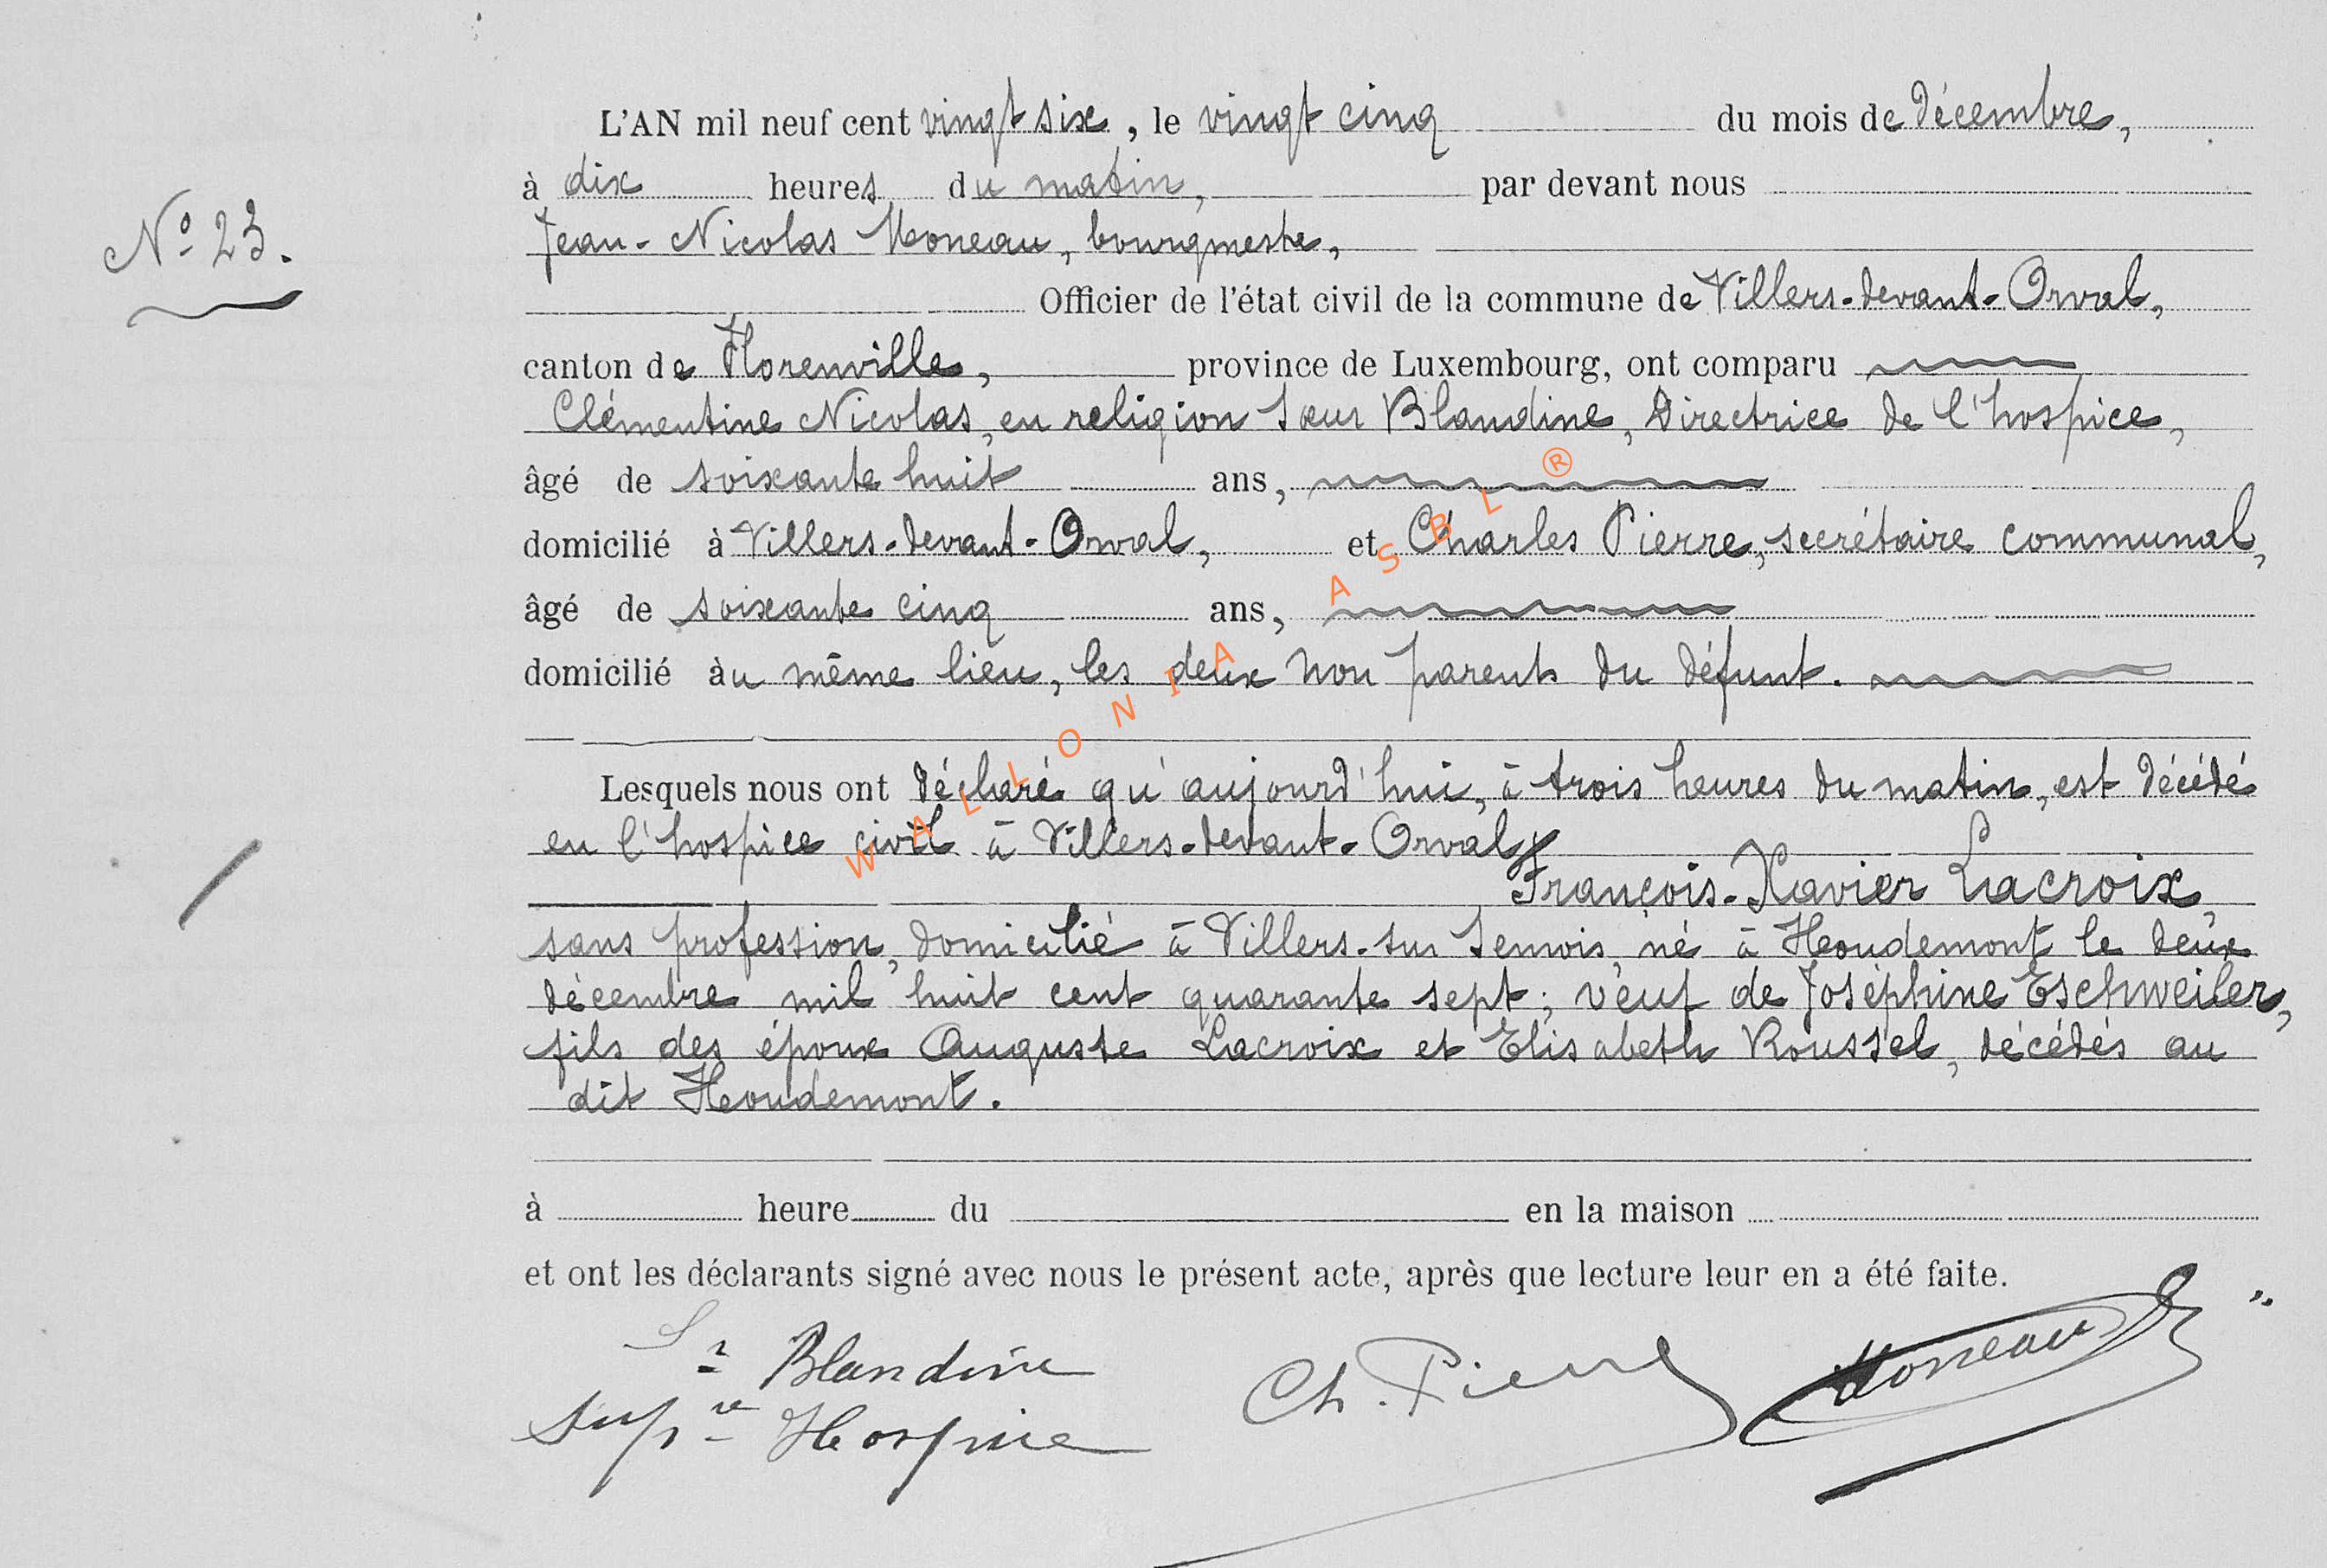 L'AN mil neuf cent vingt six, le vingt cinq du mois de décembre,
à dix heures du matin, par devant nous
N° 23.
Jean-Nicolas Moneau, bourgmestre,
Officier de l'état civil de la commune de Villers-devant-Orval,
canton de Florenville, province de Luxembourg, ont comparu
Clémentine Nicolas, en religion Sœur Blandine, Directrice de l'hospice,
âgé de soixante huit ans,
domicilié à Villers-devant-Orval, et Charles Pierre, secrétaire communal,
âgé de soixante cinq ans,
domicilié àu même lieu, les deux non parents du défunt.
Lesquels nous ont déclaré qu'aujourd'hui, à trois heures du matin, est décédé
en l'hospice civil à Villers-devant-Orval,
François-Xavier Lacroix,
sans profession, domicilié à Villers-sur Semois, né à Houdemont le deux
décembre mil huit cent quarante sept; veuf de Joséphine Eschweiler,
fils des époux Auguste Lacroix et Elisabeth Roussel, décédés au
dit Houdemont.
à heure du en la maison
et ont les déclarants signé avec nous le présent acte, après que lecture leur en a été faite.
Sr Blandine
Supre Hospice
Ch. Pierre
Moneau
WALLONIA ASBL ®